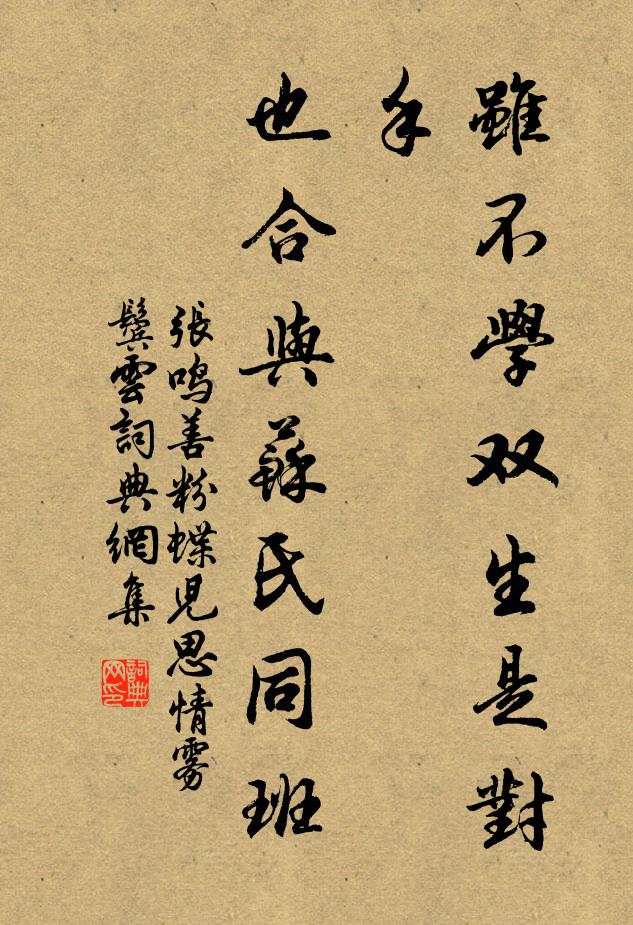 雖不學双生是對
手
也合與蘇氏同班
張鳴善粉蝶兒思情雾
鬓雲詞典網集
詞典
网印